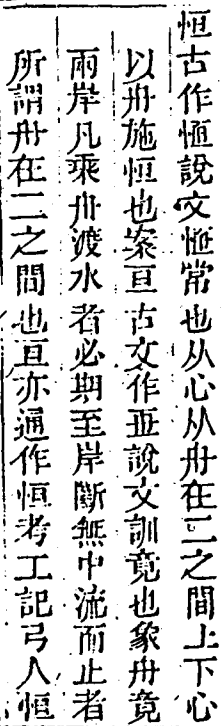 恒古作恆說文恆常也从心从舟在二之間上下心
以舟施恒也案亘古文作亙說文訓竟也象舟竟
兩岸凡乘舟渡水者必期至岸斷無中流而止者
所謂舟在二之間也亘亦通作恒考工記弓人恒